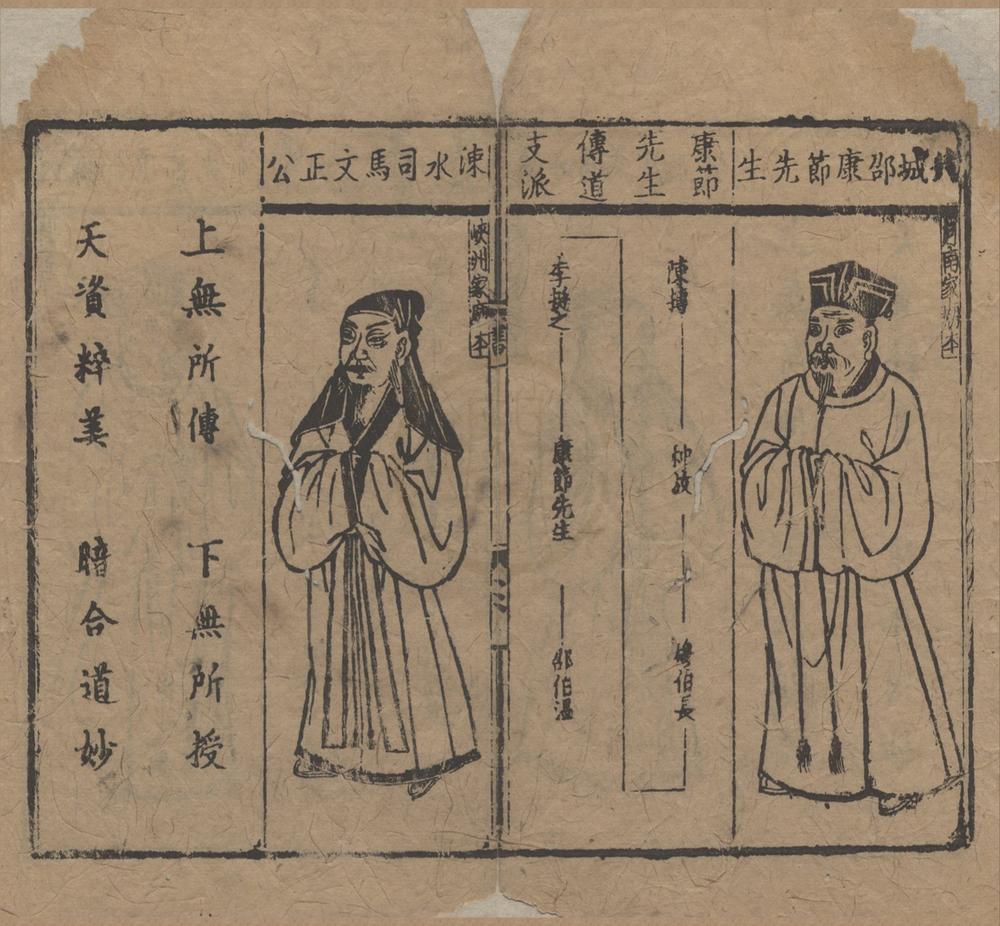 共城邵康節先生
河南家廟本
康節先生傳道支派
陳摶
种放
穆伯長
李挺之
康節先生
邵伯溫
涑水司馬文正公
峽州家廟本
上無所傳 下無所授
天資粹美 暗合道妙